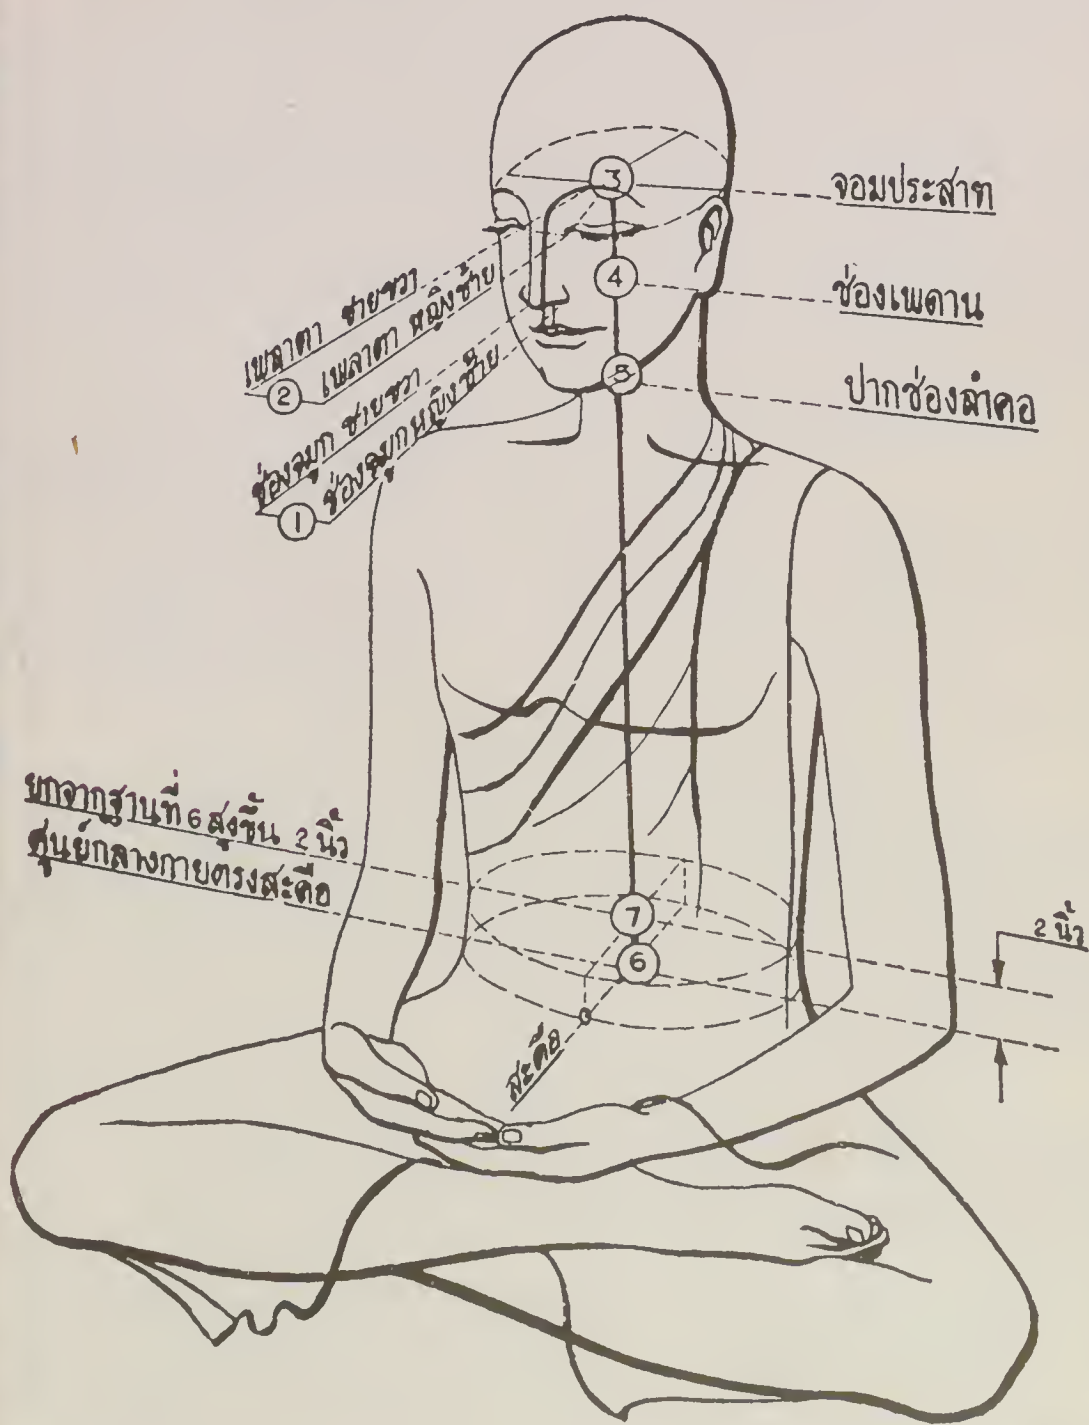 3
จอมประสาท
4
ช่องเพดาน
5
ปากช่องลำคอ
เพลาตา ชายขวา
2 เพลาตา หญิงซ้าย
ช่องจมูก ชายขวา
1 ช่องจมูกหญิงซ้าย
ยกจากฐานที่ 6 สูงขึ้น 2 นิ้ว
ศูนย์กลางกายตรงสะดือ
7
6
2 นิ้ว
สะดือ